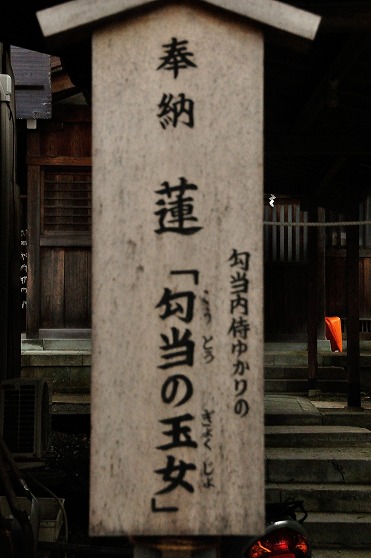 勾当内侍ゆかりの
奉納
蓮
「勾当の玉女」
こうとう
ぎょくじょ